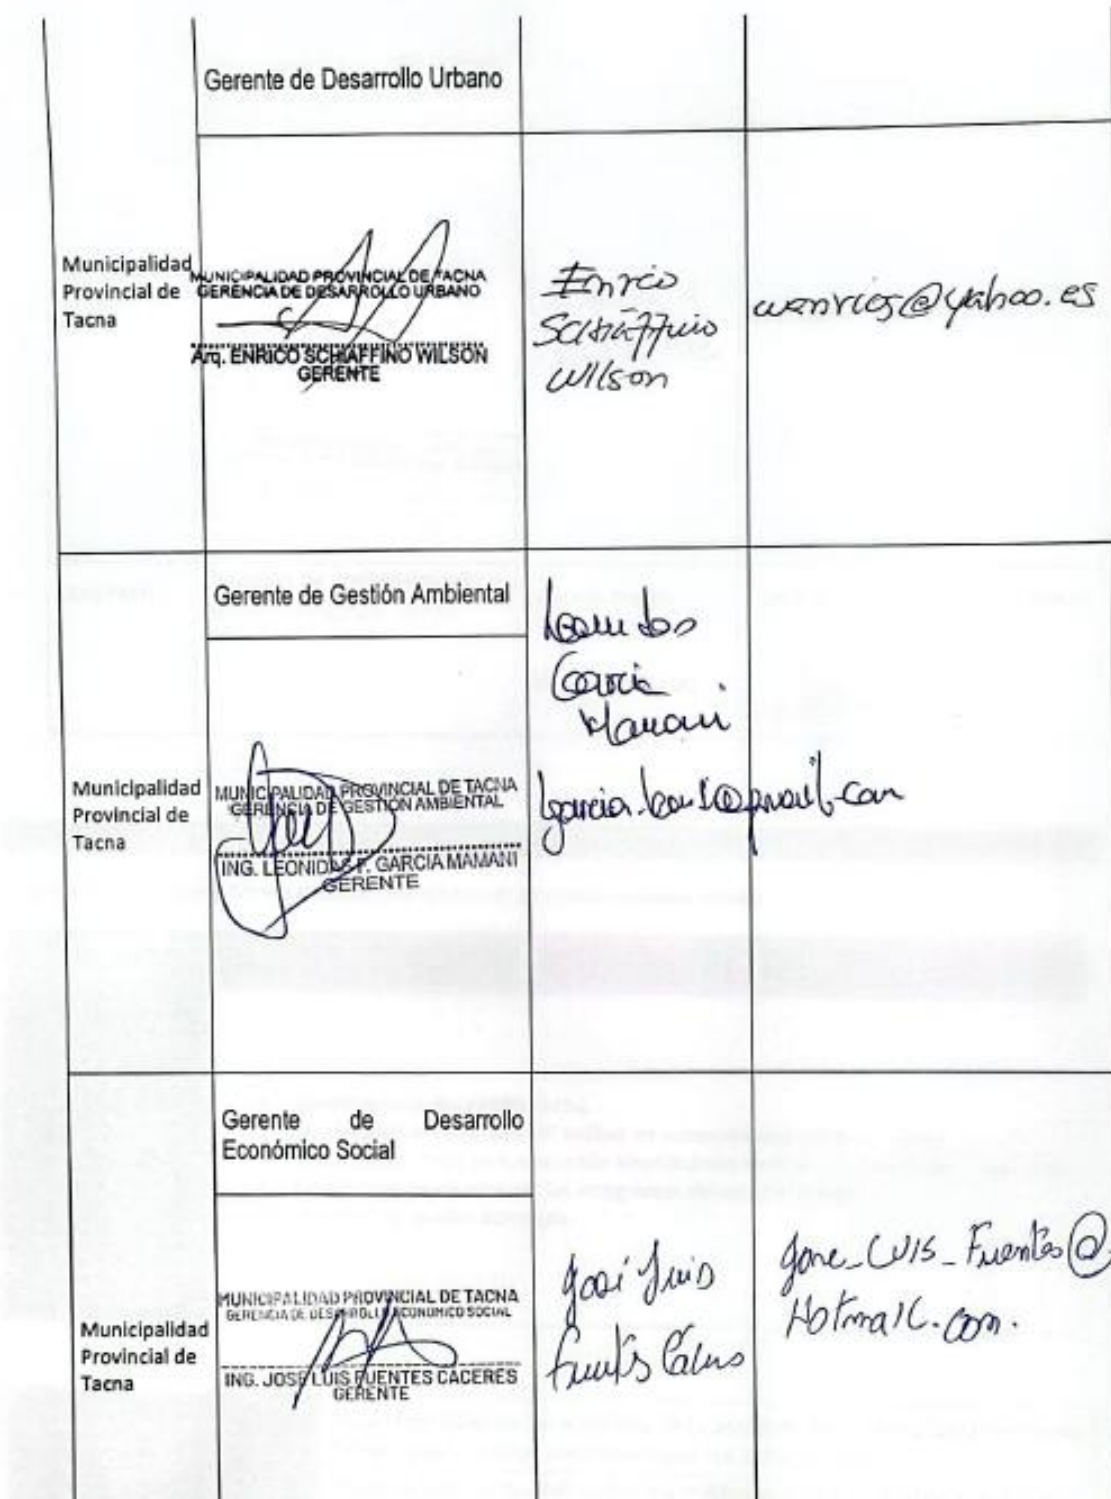 Gerente de Desarrollo Urbano
Municipalidad
Provincial de
Tacna
MUNICIPALIDAD PROVINCIAL DE TACNA
GERENCIA DE DESARROLLO URBANO
Arq. ENRICO SCHIAFFINO WILSON
GERENTE
Enrico
Schiaffino
Wilson
@yahoo.es
Gerente de Gestión Ambiental
Municipalidad
Provincial de
Tacna
MUNICIPALIDAD PROVINCIAL DE TACNA
GERENCIA DE GESTION AMBIENTAL
ING. LEONIDAS F. GARCIA MAMANI
GERENTE
Leonidas
Garcia
Mamani
Gerente de Desarrollo
Económico Social
Municipalidad
Provincial de
Tacna
MUNICIPALIDAD PROVINCIAL DE TACNA
GERENCIA DE DESARROLLO ECONOMICO SOCIAL
ING. JOSE LUIS FUENTES CACERES
GERENTE
José Luis
Fuentes Cáceres
Jose_Luis_Fuentes@
Hotmail.com.